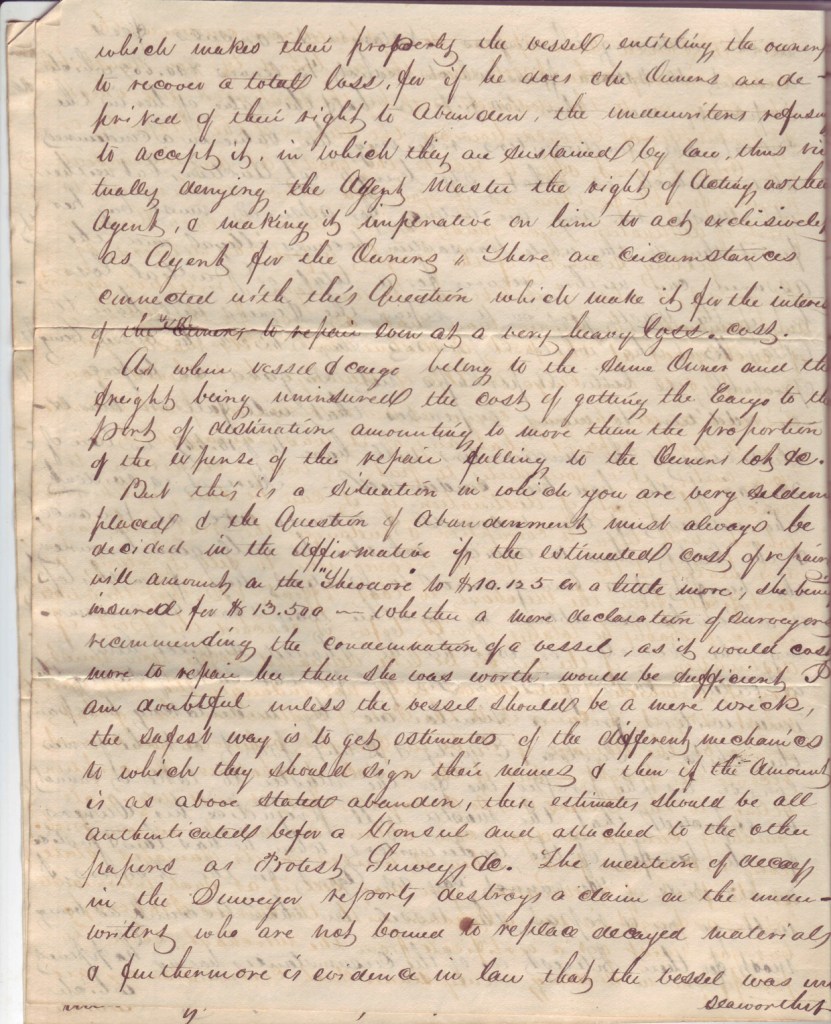 which makes their property the vessel, entitling the owners
to recover a total loss, for if he does the Owners are de-
prived of their right to Abandon, the underwriters refusing
to accept it, in which they are sustained by law, thus vir
tually denying the Agent Master the right of Acting as their
Agent, & making it imperative on him to act exclusively
as Agent for the Owners. There are circumstances
connected with this Question which make it for the interes
of the Owners to repair even at a very heavy loss. cost.
As when vessel & cargo belong to the same Owner and the
freight being uninsured the cost of getting the Cargo to the
port of destination amounting to more than the proportion
of the expense of the repair falling to the Owners lot &c.
But this is a situation in which you are very seldom
placed & the Question of Abandonment must always be
decided in the Affirmative if the estimated cost of repairs
will amount on the "Theodore" to $10.125 or a little more, she being
insured for $13.500 — Whether a mere declaration of surveyors
recommending the condemnation of a vessel, as it would cost
more to repair her than she was worth would be sufficient I
am doubtful unless the vessel should be a mere wreck,
the safest way is to get estimates of the different mechanics
to which they should sign their names & then if the Amount
is as above stated abandon, these estimates should be all
authenticated befor a Consul and attached to the other
papers as Protest Surveys &c. The mention of decay
in the Surveyor reports destroys a claim on the under-
writers who are not bound to replace decayed materials
& furthermore is evidence in law that the vessel was un
seaworthy